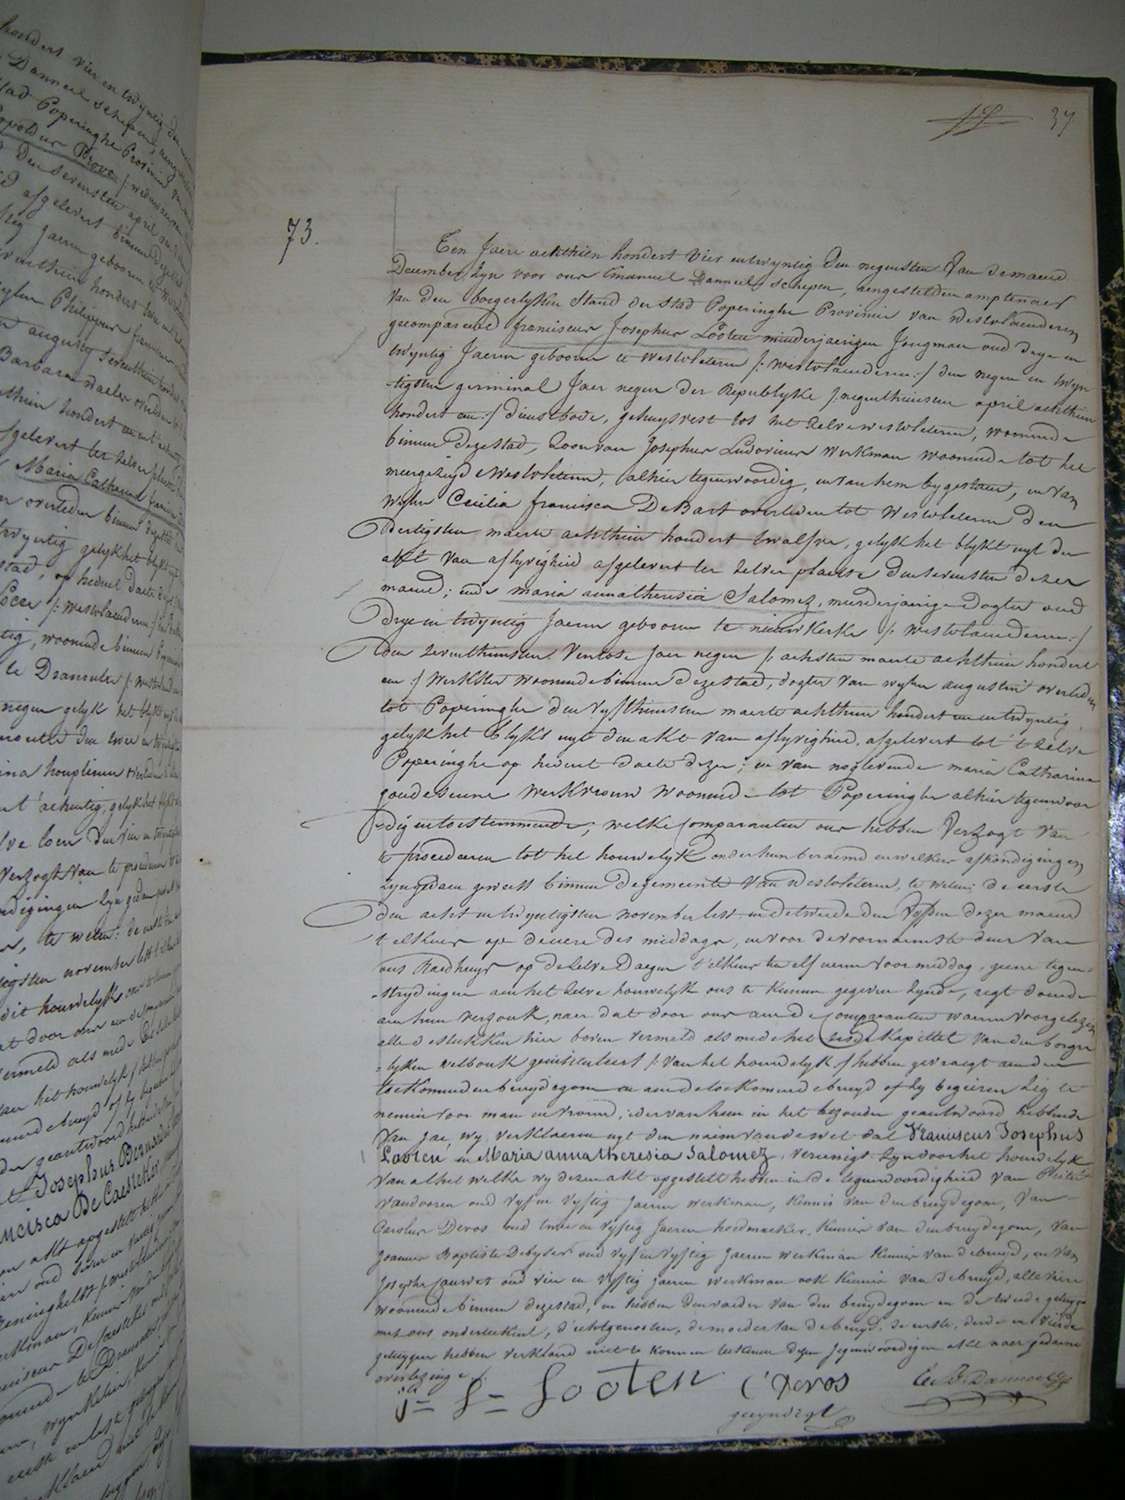 37
73.
Ten Jaere achtthien hondert vier en twyntig den negensten van de maend
December zyn voor ons Emanuel Danneel, schepen, aengestelden amptenaer
van den borgerlyken Stand der Stad Poperinghe Provincie van Westvlaenderen
gecompareerd franciscus Josephus Looten minderjaerigen Jongman oud drye en
twyntig Jaeren gebooren te Westvleteren /: Westvlaenderen :/ den negen en twyn-
tigsten germinal Jaer negen der Republyke / negenthiensten april achtthien
hondert een :/ dienstbode, gehuysvest tot het zelve westvleteren, woonende
binnen deze stad, Zoon van Josephus Ludovicus werkman woonende tot het
meergezeyde Westvleteren, alhier tegenwoordig, en van hem bygestaen, en van
wylen Cecilia francisca DeBart overleden tot Westvleteren den
dertigsten maerte achtthien hondert twalfve, gelyk het blykt uyt der
akt van aflyvigheid afgelevert ter zelver plaetse den sevensten dezer
maend; ende maria annatheresia Salomez, minderjaerige dogter oud
drye en twyntig Jaeren gebooren te nieuwkerke /: Westvlaenderen :/
den seventhiensten Ventose Jaer negen /: achtsten maerte achtthien hondert
een :/ Werkster woonende binnen deze stad, dogter van wylen augustin overleden
tot Poperinghe den vyfthiensten maerte achtthien hondert een en twyntig
gelyk het blykt uyt den akt van aflyvigheid, afgelevert tot 't zelve
Poperinghe op heden daete dezer; en van noglevende maria Catharina
goudeseune werkvrouw woonende tot Poperinghe alhier tegenwoor
dig en toestemmende; welke comparanten ons hebben verzogt van
te procederen tot het houwelyk onder hun beraemd en welkers afkondigingen
zyn gedaen geweest binnen de gemeente van Westvleteren, te weten: de eerste
den acht en twyntigsten november lest en de tweede den vyfden dezer maend
t'elkens op de uere des middags, en voor de voornaemste deur van
ons Raedhuys op de zelve daegen t'elkens ten elf ueren voormiddag, geene tegen-
strydingen aen het zelve houwelyk ons te kennen gegeven zynde, regt doende
aen hun verzoek, naer dat door ons aen de comparanten waeren voorgelezen
alle de stukken hier boven vermeld als mede het zesde kapittel van den borger
lyken wetboek geintituleert /: van het houwelyk :/ hebben gevraegt aen den
toekomenden bruydegom en aen de toekomende bruyd of zy begeiren zig te
nemen voor man en vrouw; ider van hun in het bezonder geantwoord hebbende
van Jae, wy verklaeren uyt den naem van de wet dat Franciscus Josephus
Looten en Maria anna theresia Salomez, vereenigt zyn door het houwelyk
van al het welke wy dezen akt opgesteld hebben in de tegenwoordigheid van Pieter
vandooren oud vyf en vyftig Jaeren werkman, kennis van den bruydegom, van
Carolus Devos oud twee en vyftig Jaeren hoedmaeker, kennis van den bruydegom, van
Joannes Baptiste Debyser oud vyf en vyftig Jaeren werkman kennis van de bruyd, en van
Josephus Sauwer oud vier en vyftig Jaeren werkman ook kennis van de bruyd, alle vier
woonende binnen deze stad, en hebben den vaeder van den bruydegom en de tweede getuyge
met ons onderteekent, d'echtgenoten, de moeder van de bruyd, de eerste, derde en vierde
getuygen hebben verklaerd niet te konnen teekenen dezen tegenwoordigen akt naer gedaene
overlezinge.
J= L= Looten C Devos